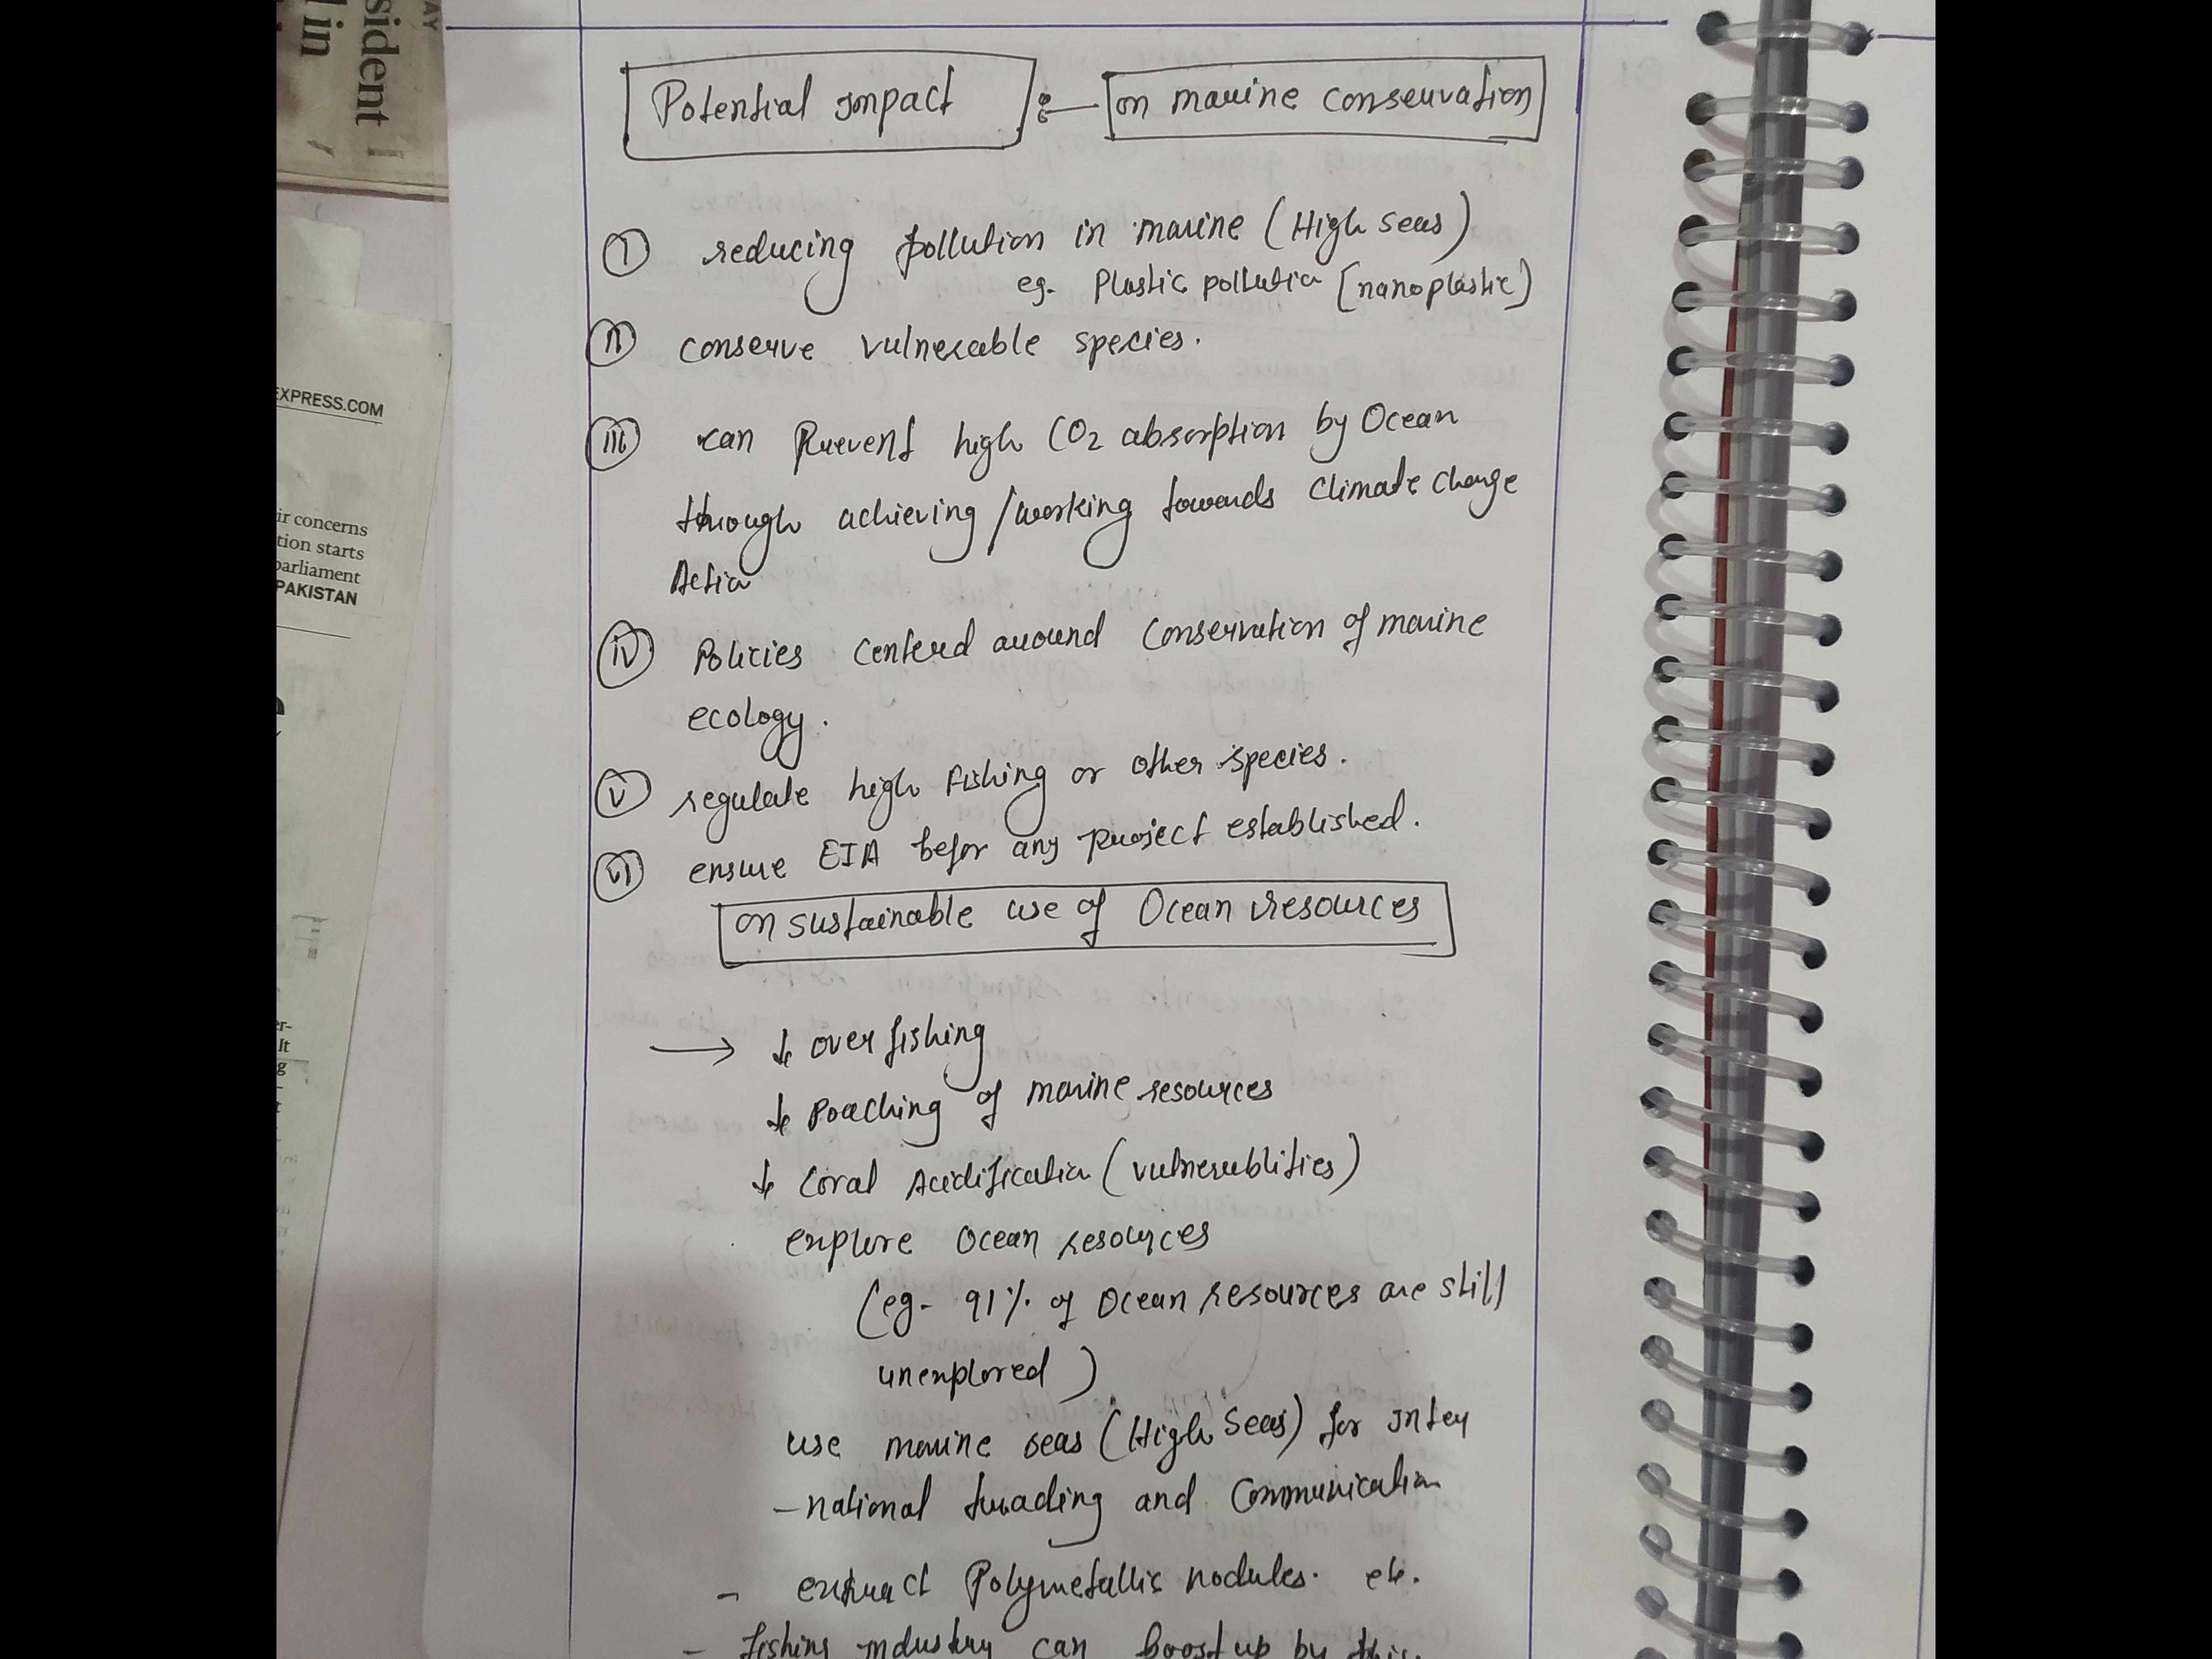 AY
sident
l in
EXPRESS.COM
ir concerns
tion starts
parliament
PAKISTAN
er-
It
g
Potential Impact :— on marine conservation
(I) reducing pollution in marine (High seas)
eg. Plastic pollution [nanoplastic]
(II) conserve vulnerable species.
(III) can Prevent high CO2 absorption by Ocean
through achieving / working towards climate change
Action
(IV) Policies centerd around conservation of marine
ecology.
(V) regulate high fishing or other species.
(VI) ensure EIA befor any project established.
on sustainable use of Ocean resources
→ ↓ over fishing
↓ Poaching of marine resources
↓ Coral Acidification (vulnerablities)
explore Ocean resources
(eg- 91% of Ocean resources are still
unexplored)
use marine seas (High Seas) for Inter
-national trading and communication
- extract Polymetallic nodules. etc.
- fishing industry can boost up by this.